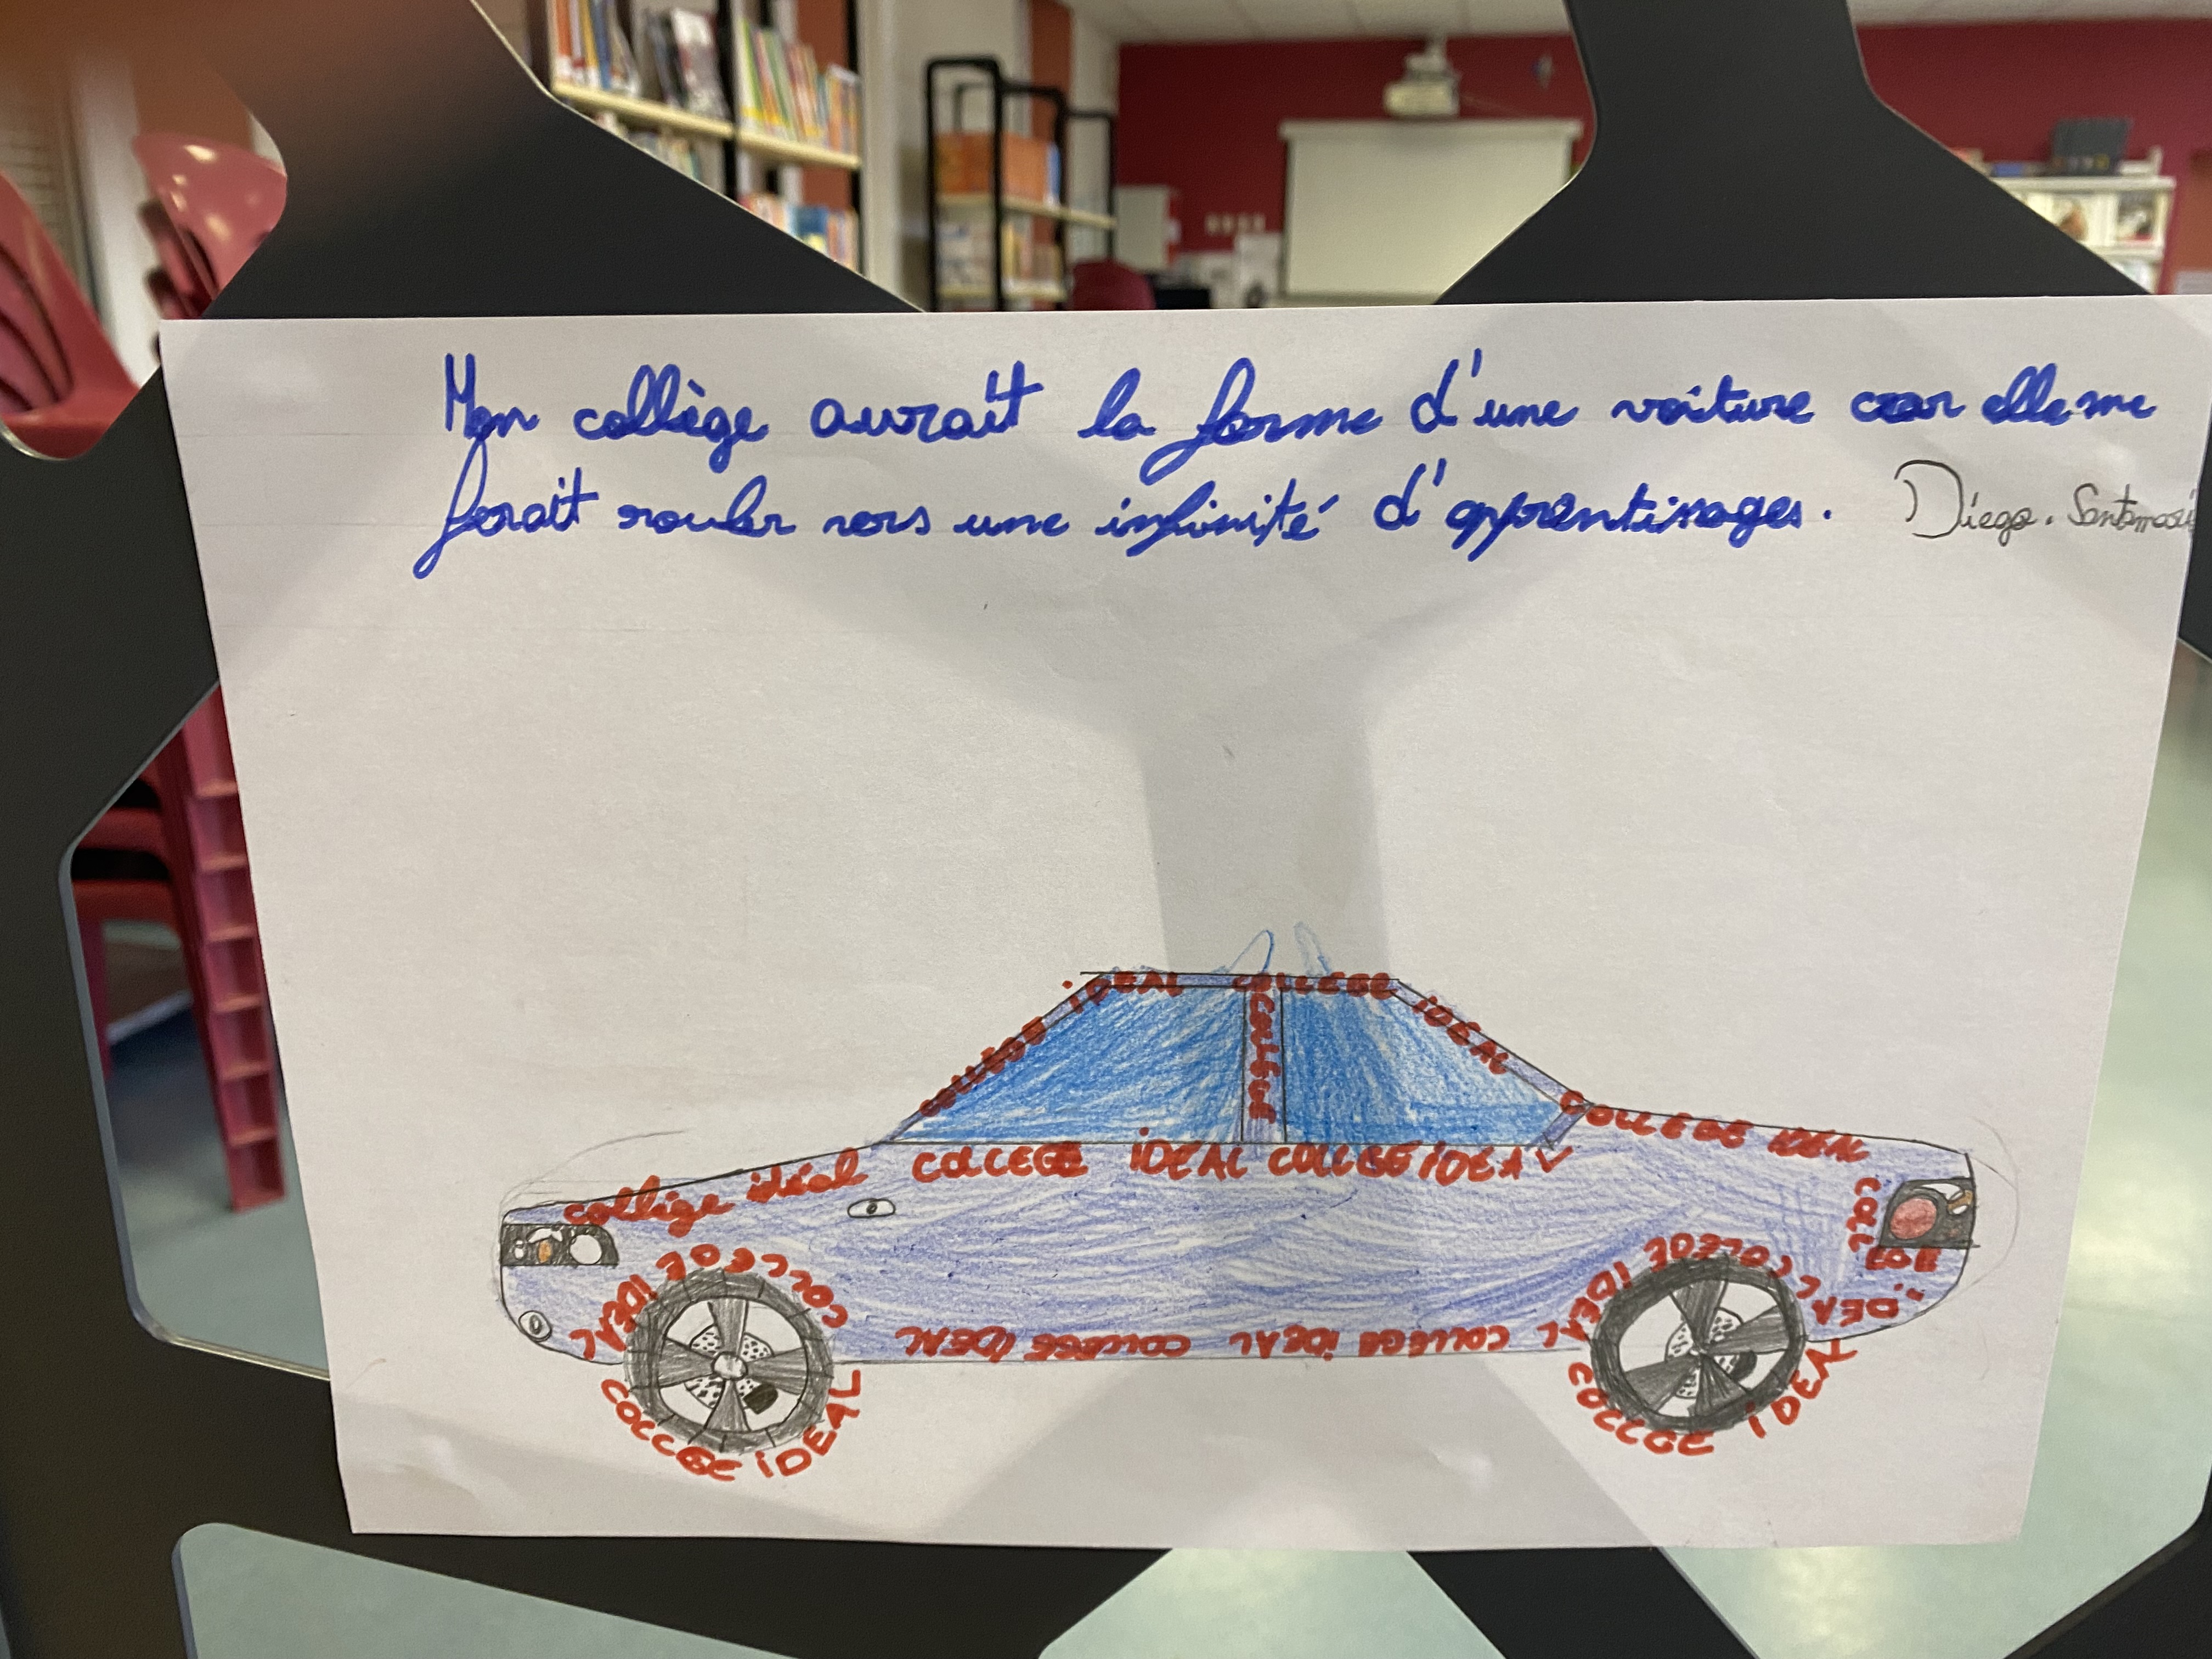 Mon collège aurait la forme d'une voiture car elle me
ferait rouler vers une infinité d'apprentissages. Diego. Santamari
IDEAL COLLEGE IDEAL
COLLEGE
COLLEGE
COLLEGE IDEAL
collège idéal COLLEGE IDEAL COLLEGE IDEAL
COLLEGE IDEAL
COLLEGE IDEAL
IDEAL
COLLEGE IDEAL COLLEGE IDEAL
COLLEGE IDEAL
COLLEGE IDEAL